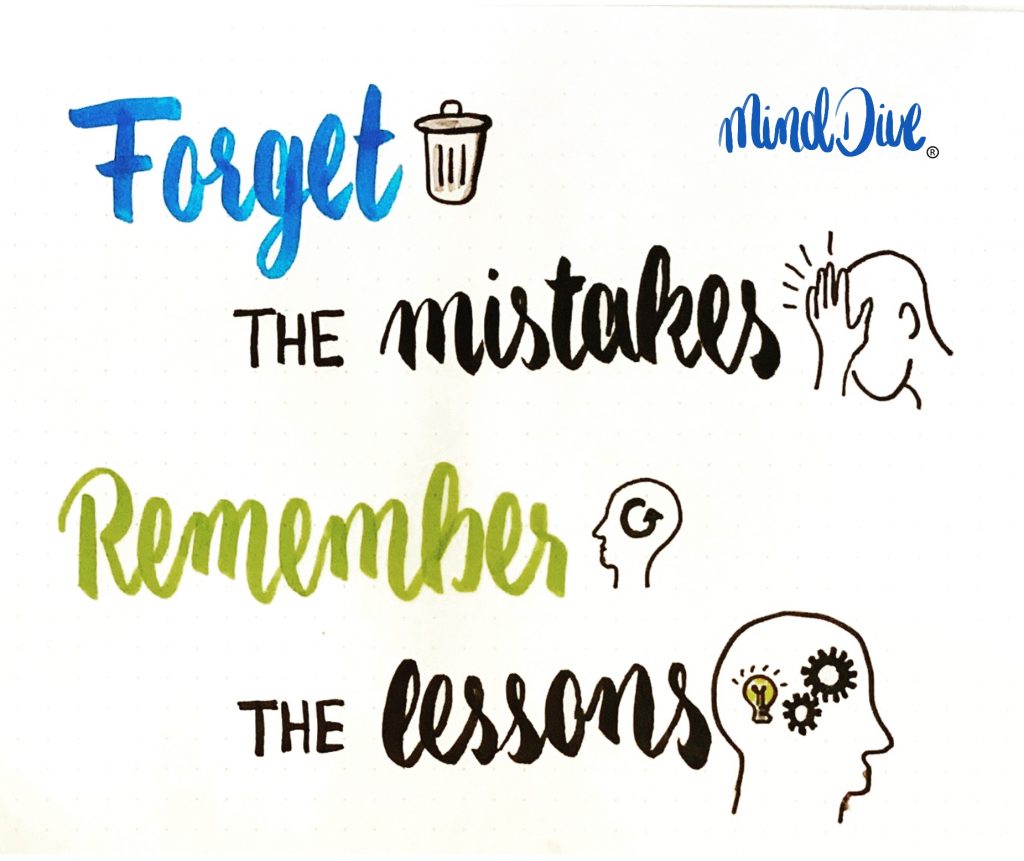 Forget
Mind Dive®
THE mistakes
Remember
THE lessons